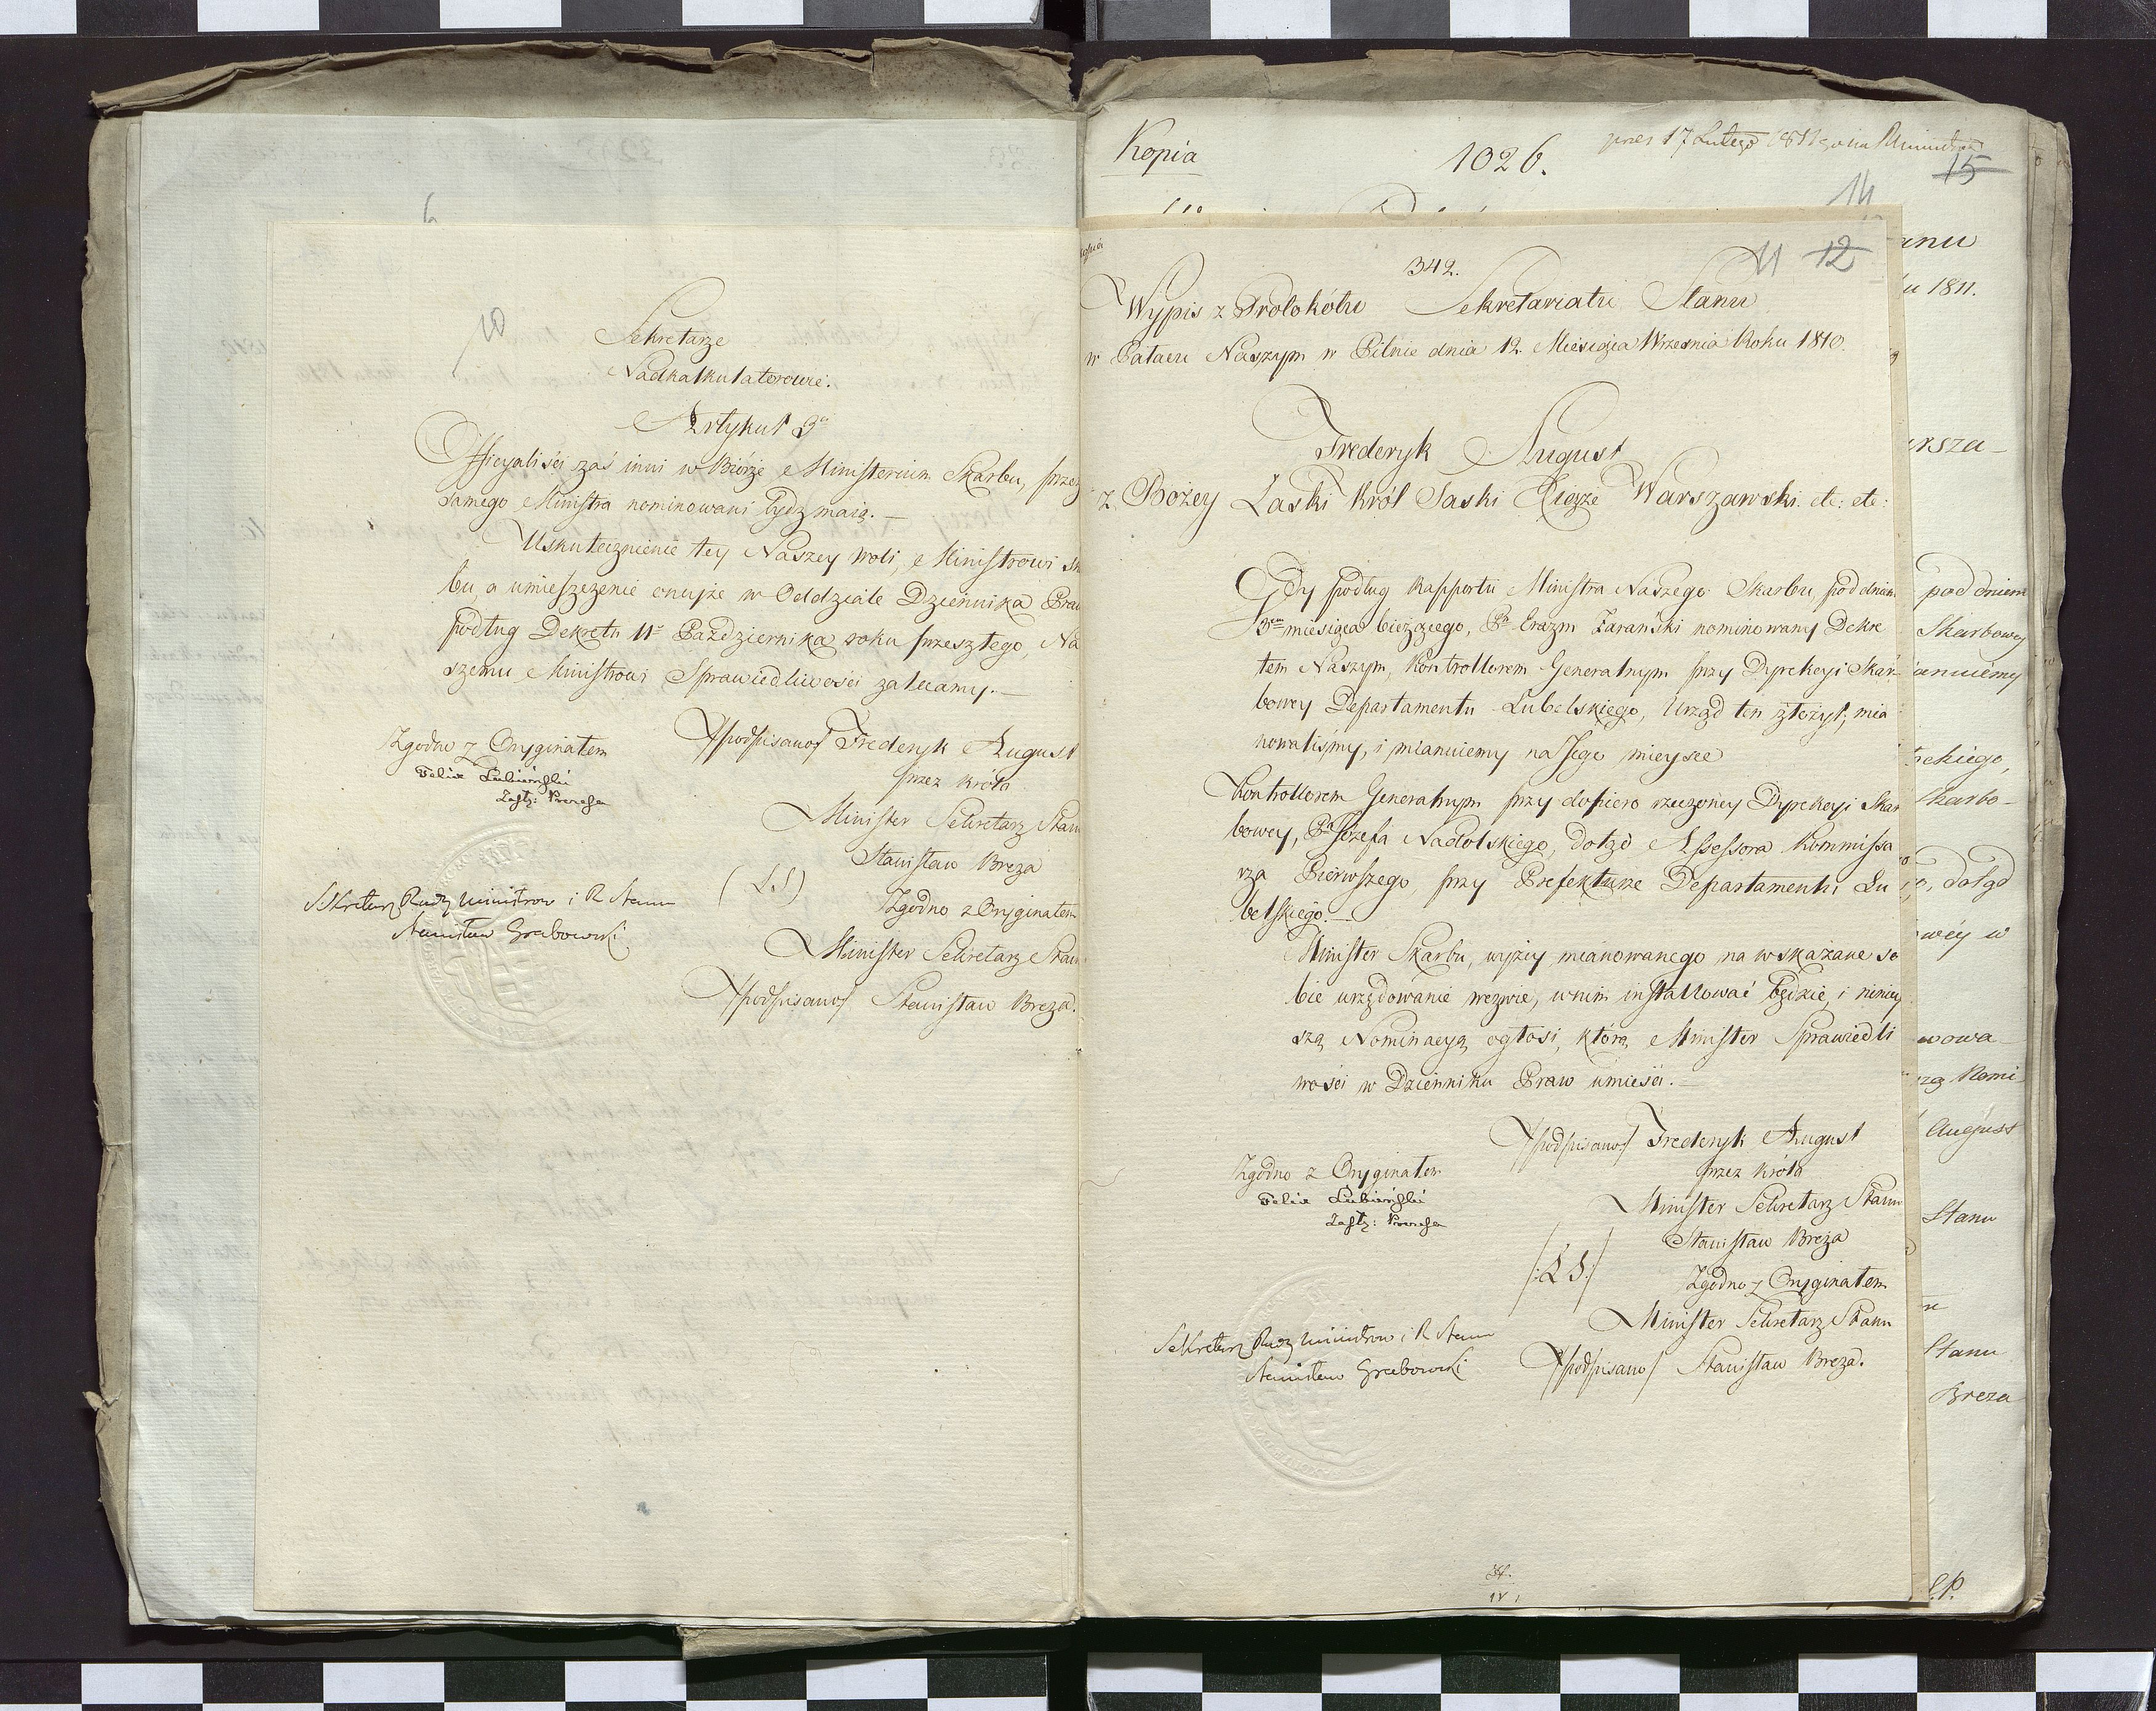 10
Sekretarze
Nadkalkulatorowie.
Artykuł 3º
Officyaliści zaś inni w Biórze Ministerium Skarbu, przez
samego Ministra nominowani bydź maią. —
Uskutecznienie tey Naszey woli, Ministrowi Sk
bu, a umieszczenie onejże w Oddziale Dziennika Praw
podług Dekretu 11º Października roku przeszłego, Na
szemu Ministrowi Sprawiedliwości zalecamy. —
/podpisano/ Fryderyk August
przez króla
Minister Sekretarz Stanu
Stanisław Breza
(LS)
Zgodno z Oryginałem
Minister Sekretarz Stanu
/podpisano/ Stanisław Breza.
Zgodno z Oryginałem
Felix Łubieński
Zastę: Prezesa
Sekretarz Rady Ministrow i R Stanu
Stanisław Grabowski
Kopia
1026.
17 Lutego 1811
15
14
11 12
342.
Wypis z Protokółu Sekretariatu Stanu
w Pałacu Naszym w Pilnie dnia 12. Miesiąca Września Roku 1810.
Frederyk August
z Bożey Łaski Król Saski Xiąże Warszawski etc: etc:
Gdy podług Rapportu Ministra Naszego Skarbu, pod dniem
3em miesiąca bieżącego, Pn Erazm Zarański nominowany Dekre
tem Naszym, Kontrollorem Generalnym przy Dyrekcyi Skar-
bowey Departamentu Lubelskiego, Urząd ten złożył, mia
nowaliśmy, i mianuiemy na Jego mieysce
Kontrollorem Generalnym przy dopiero rzeczoney Dyrekcyi Skar
bowey, Pn Józefa Nadolskiego, dotąd Assessora Kommissa
rza Pierwszego, przy Prefekturze Departamentu Lu
belskiego. —
Minister Skarbu, wyżey mianowanego na wskazane so
bie urzędowanie wezwie, w nim installować będzie, i niniey
szą Nominacyą ogłosi, którą Minister Sprawiedli
wości w Dzienniku Praw umieści. —
/podpisano/ Frederyk August
przez króla
Minister Sekretarz Stanu
Stanisław Breza
/:LS:/
Zgodno z Oryginałem
Minister Sekretarz Stanu
/podpisano/ Stanisław Breza.
Zgodno z Oryginałem
Felix Łubieński
Zastę: Prezesa
Sekretarz Rady Ministrow i R Stanu
Stanisław Grabowski
anu
u 1811.
rsza-
pod dniem
Skarbowey
anuiemy
ckiego,
Skarbo-
o, dotąd
owéy w
wowa-
August
Stanu
Stanu
Breza